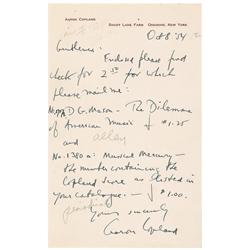 AARON COPLAND SHADY LANE FARM OSSINING, NEW YORK
Oct 8 '54
Gentlemen:
Enclosed please find
check for 2.25 for which
please mail me:
D G. Mason - The Dilemma
of American Music $1.25
and
No. 1380a: Musical Mercury -
the number containing the
Copland score as listed in
your catalogue - $1.00.
Yours sincerely
Aaron Copland